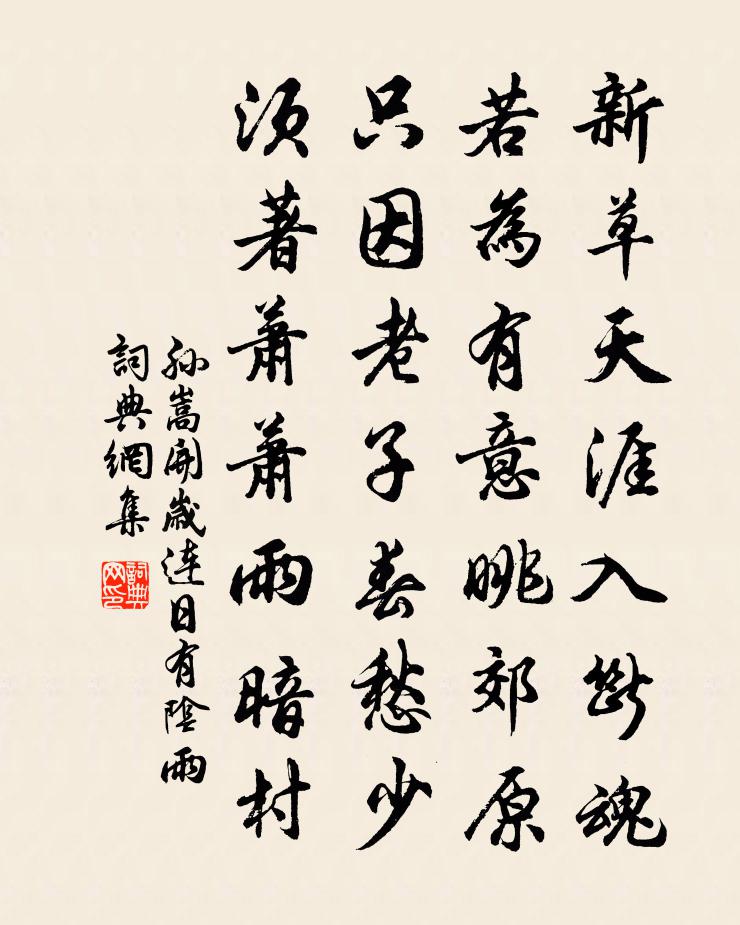 新草天涯入斷魂
若為有意眺郊原
只因老子春愁少
須著蕭蕭雨暗村
孫嵩開歲連日有陰雨
詞典網集
詞典网印